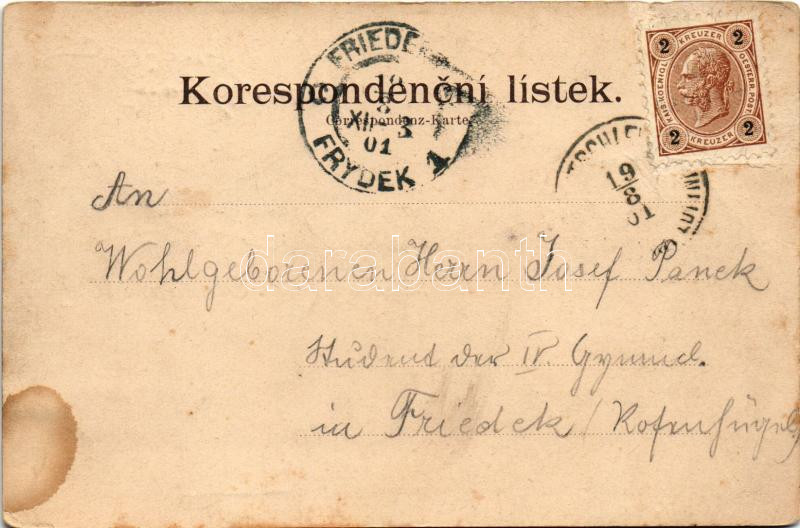 FRIEDE
FRYDEK 1
XII-3
01
Korespondenční lístek.
Correspondenz-Karte
2 KREUZER 2
KAIS. KOENIGL. OESTERR. POST.
2 KREUZER 2
19/8
01
An
Wohlgeborenen Herrn Josef Panek
darabanth
Student der IV Gymnd.
in Friedek / Rosenhügel